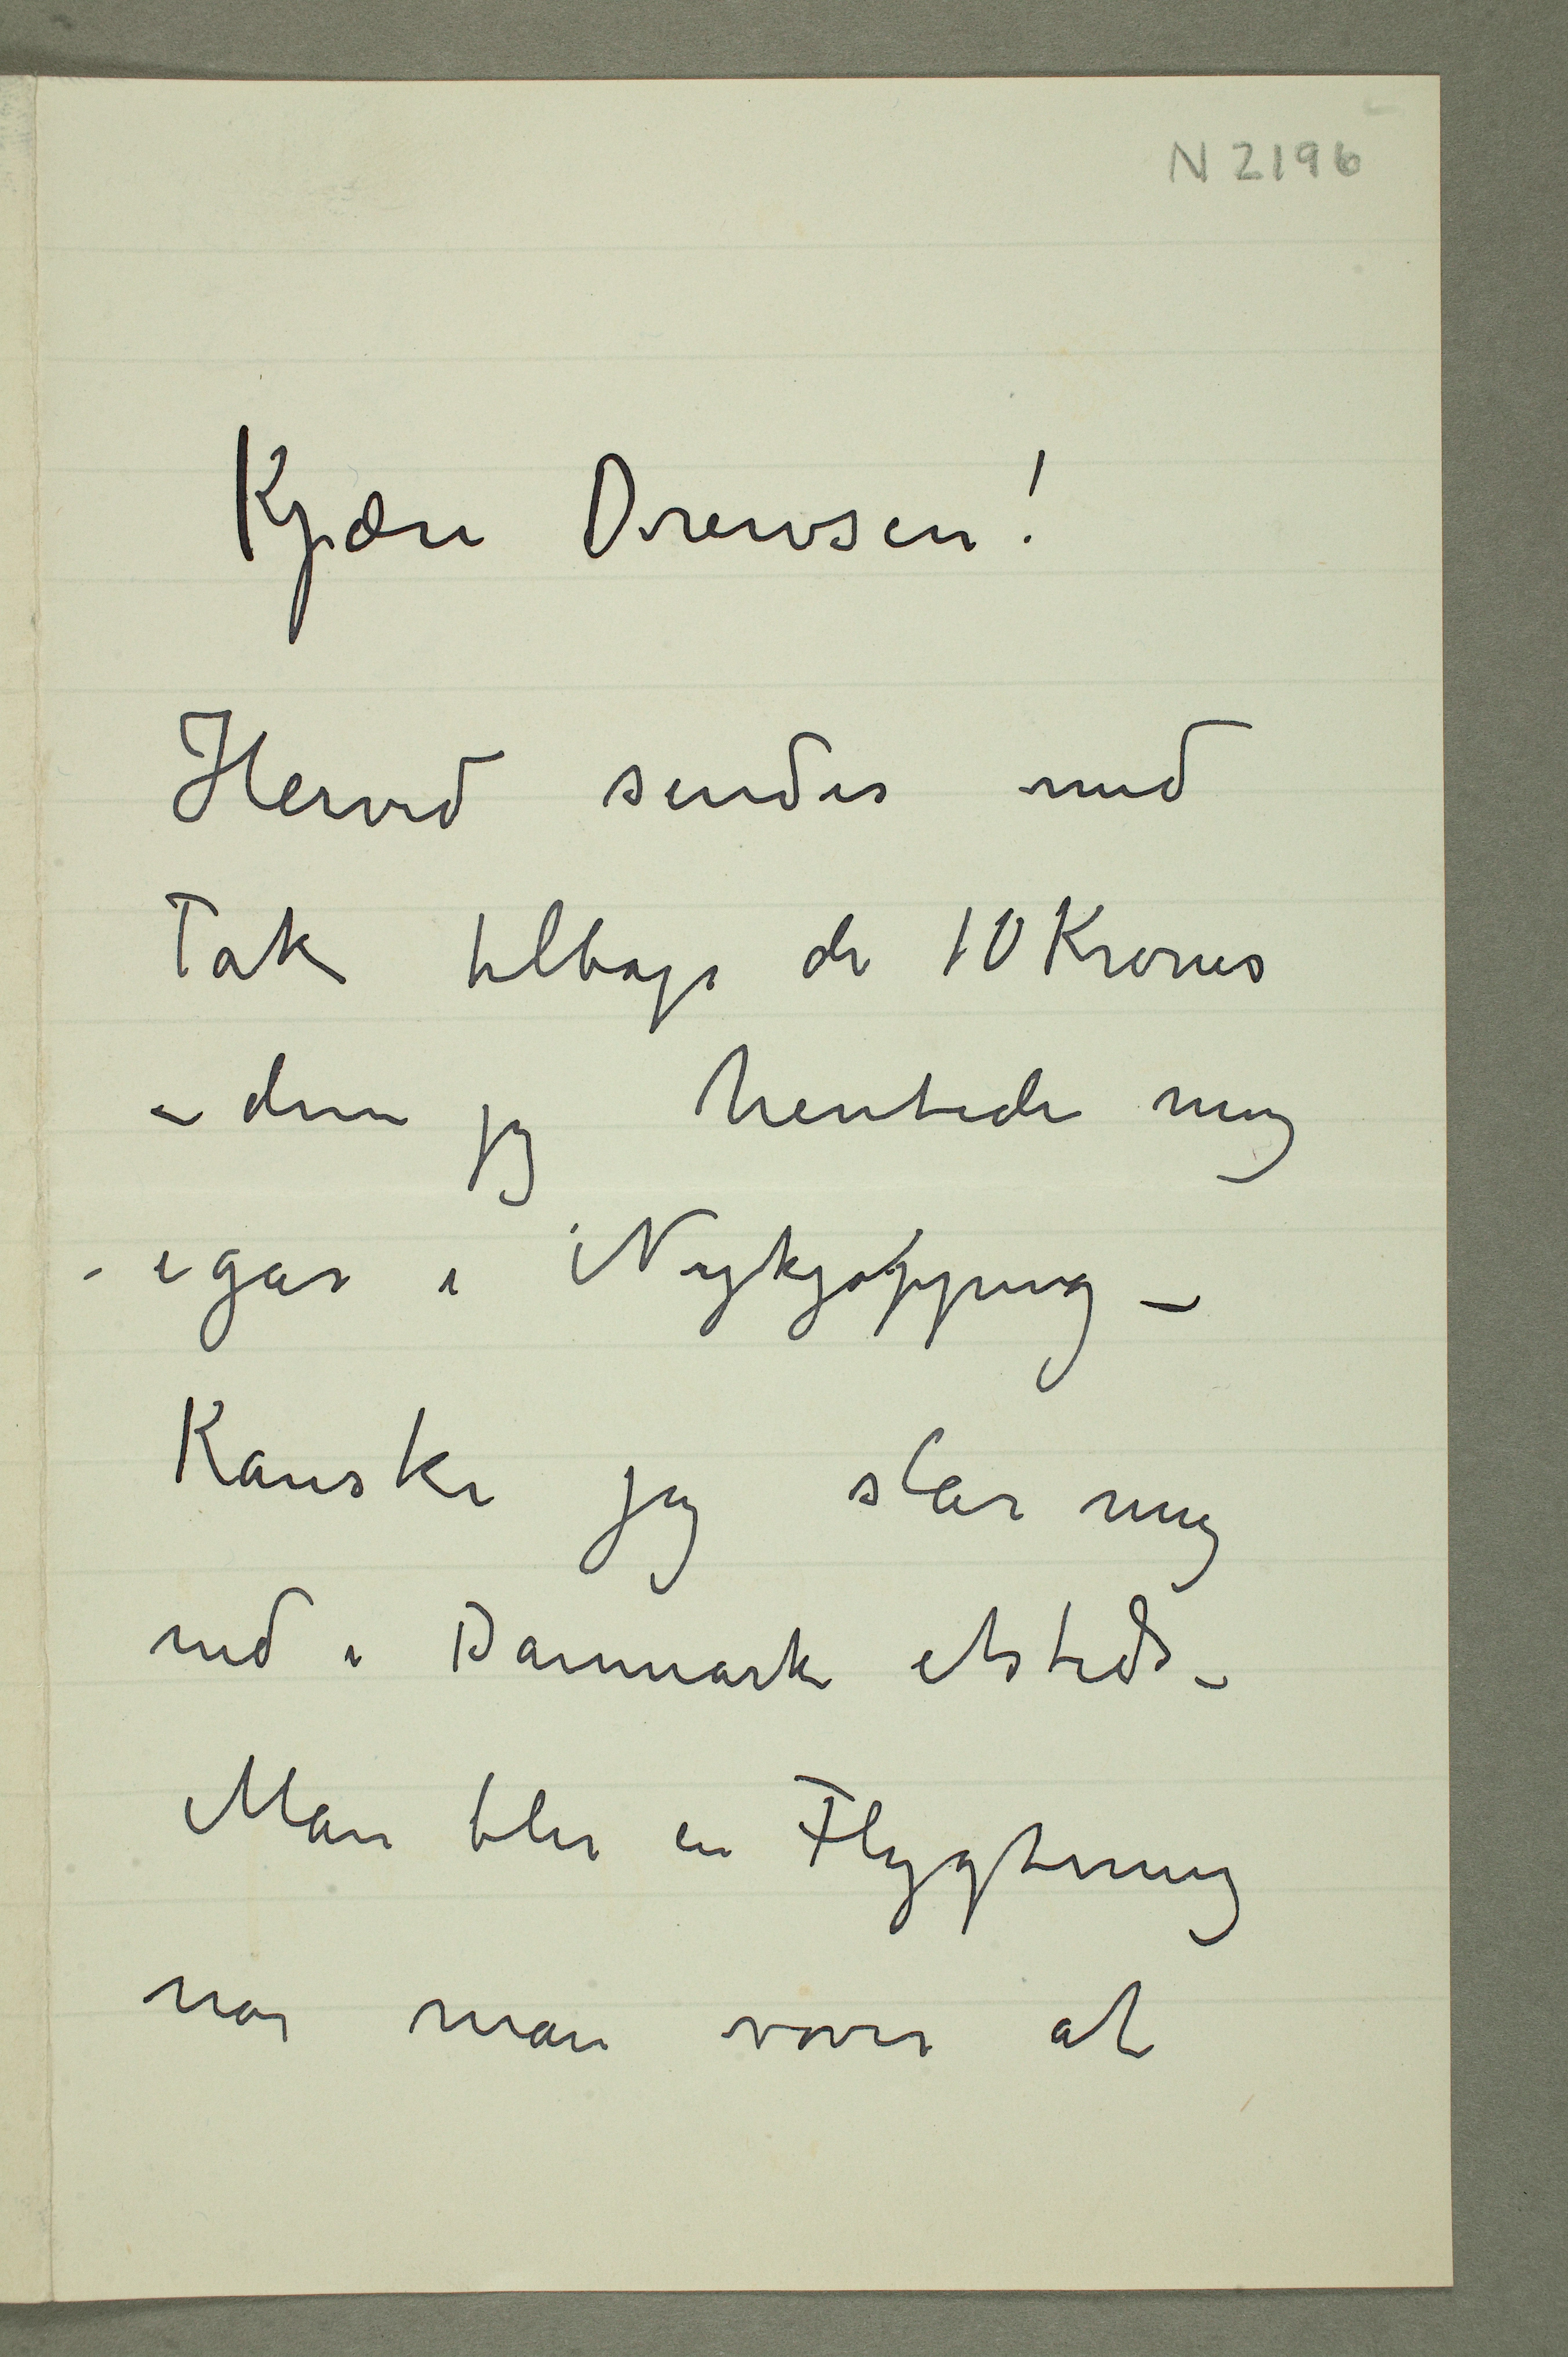 N 2196
Kjære Drewsen!
Herved sendes med
Tak tilbage de 10 Kroner
– dem jeg hentede mig
– igår i Nykjøpping –
Kanske jeg slår mig
ned i Danmark etsteds –
Man blir en Flygtning
når man vover at